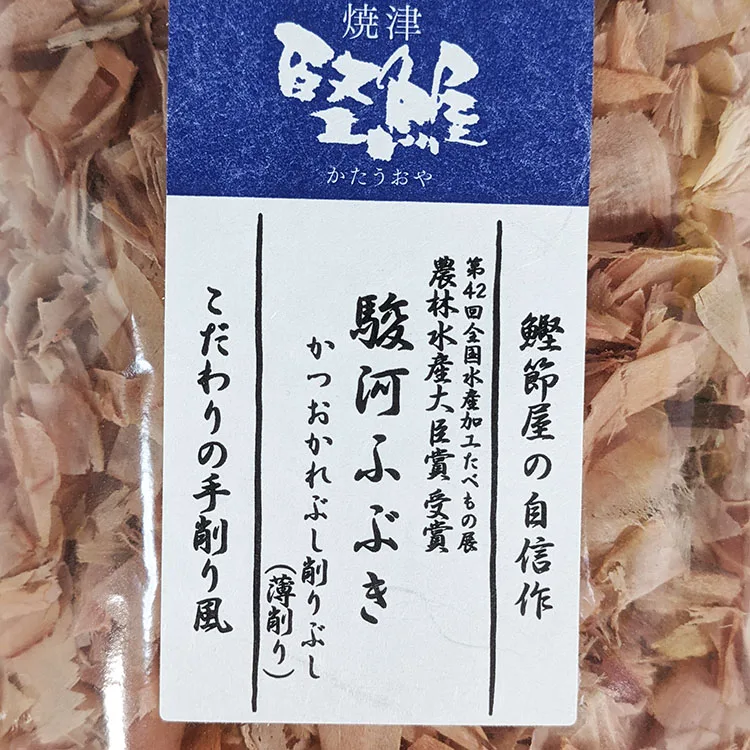 焼津
堅魚屋
かたうおや
鰹節屋の自信作
第42回全国水産加工たべもの展
農林水産大臣賞 受賞
駿河ふぶき
かつおかれぶし削りぶし
(薄削り)
こだわりの手削り風